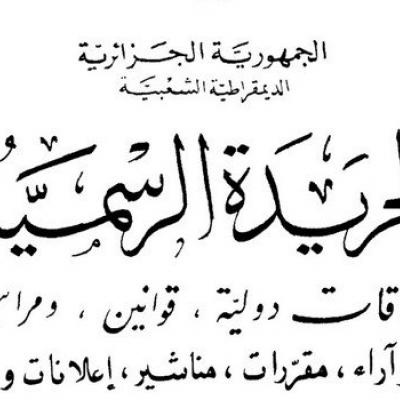 الجمهورية الجزائرية
الديمقراطية الشعبية
الجريدة الرسمية
قات دولية ، قوانين ، ومراس
وآراء ، مقررات ، مناشير ، إعلانات و